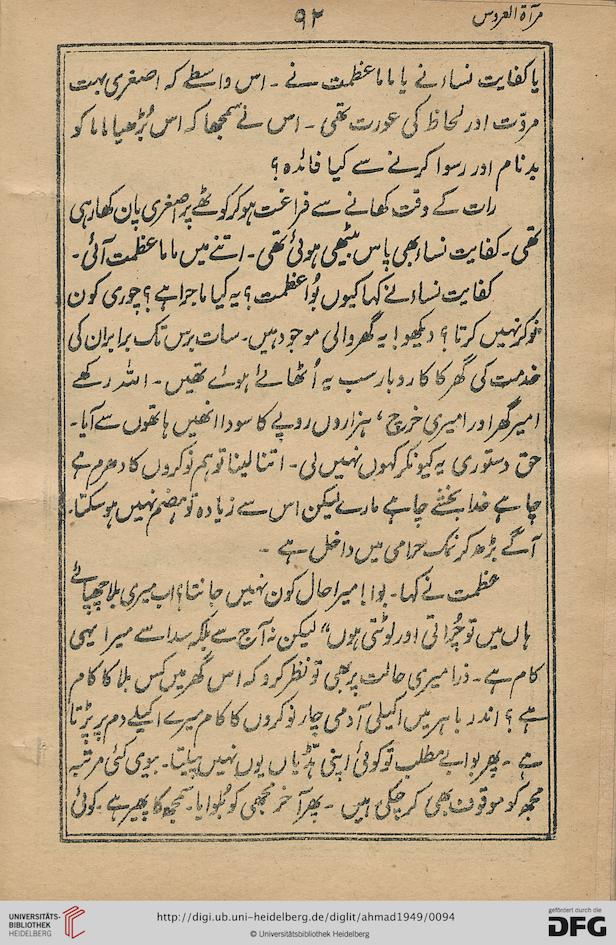 مرآۃ العروس
۹۲
یا کفایت نساء نے یا ماما عظمت نے ۔ اس واسطے کہ اصغری بہت
مروّت اور لحاظ کی عورت تھی ۔ اس نے سمجھا کہ اس بُڑھیا ماما کو
بدنام اور رسوا کرنے سے کیا فائدہ ؟
رات کے وقت کھانے سے فراغت ہو کر کوٹھے پر اصغری پان کھا رہی
تھی ۔ کفایت نساء بھی پاس بیٹھی ہوئی تھی ۔ اتنے میں ماما عظمت آئی ۔
کفایت نساء نے کہا کیوں بُوا عظمت ؟ یہ کیا ماجرا ہے ؟ چوری کون
نوکر نہیں کرتا ؟ دیکھو ! یہ گھر والی موجود ہیں ۔ سات برس تک برابر ان کی
خدمت کی گھر کا کاروبار سب یہ اُٹھائے ہوئے تھیں ۔ اللہ رکھے
امیر گھر اور امیری خرچ ، ہزاروں روپے کا سودا انھیں ہاتھوں سے آیا ۔
حق دستوری یہ کیونکر کہوں نہیں لی ۔ اتنا لینا تو ہم نوکروں کا دھرم ہے
چاہے خدا بخشے چاہے مارے لیکن اس سے زیادہ تو ہضم نہیں ہو سکتا ۔
آگے بڑھ کر نمک حرامی میں داخل ہے ۔
عظمت نے کہا ۔ بوا ! میرا حال کون نہیں جانتا ؟ اب میری بلا چھپائے
ہاں میں تو چُراتی اور لوٹتی ہوں” لیکن نہ آج سے بلکہ سدا سے میرا یہی
کام ہے ۔ ذرا میری حالت پر بھی تو نظر کرو کہ اس گھر میں کس بلا کا کام
ہے ؟ اندر باہر میں اکیلی آدمی چار نوکروں کا کام میرے اکیلے دم پر پڑتا
ہے ۔ پھر بوا بے مطلب تو کوئی اپنی ہڈیاں یوں نہیں پیلتا ۔ بیوی کئی مرتبہ
مجھ کو موقوف بھی کر چکی ہیں ۔ پھر آخر مجھی کو بُلوایا ۔ سمجھ کا پھیر ہے ۔ کوئی
UNIVERSITÄTS-
BIBLIOTHEK
HEIDELBERG
http://digi.ub.uni-heidelberg.de/diglit/ahmad1949/0094
© Universitätsbibliothek Heidelberg
gefördert durch die
DFG